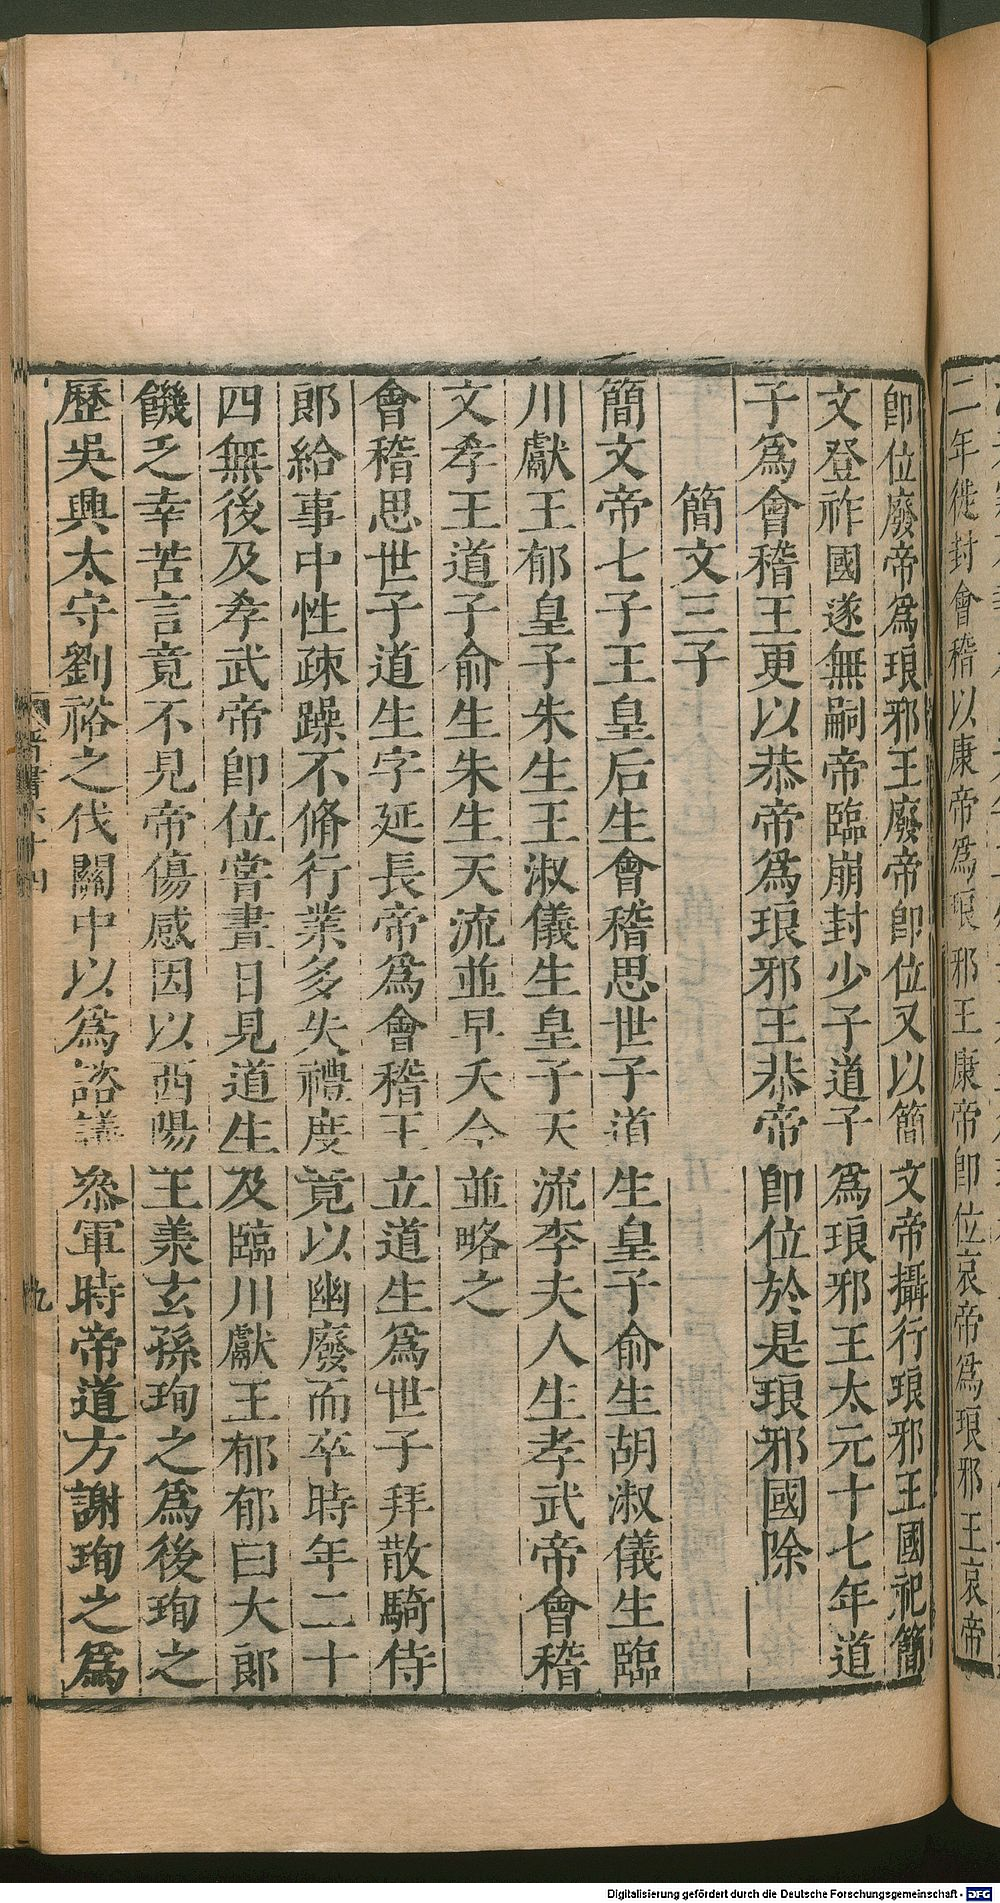 二年徙封會稽以康帝爲琅邪王康帝卽位哀帝爲琅邪王哀帝
卽位廢帝爲琅邪王廢帝卽位又以簡文帝攝行琅邪王國祀簡
文登祚國遂無嗣帝臨崩封少子道子爲琅邪王太元十七年道
子爲會稽王更以恭帝爲琅邪王恭帝卽位於是琅邪國除
簡文三子
簡文帝七子王皇后生會稽思世子道生皇子俞生胡淑儀生臨
川獻王郁皇子朱生王淑儀生皇子天流李夫人生孝武帝會稽
文孝王道子俞生朱生天流並早夭今並略之
會稽思世子道生字延長帝爲會稽王立道生爲世子拜散騎侍
郎給事中性疎躁不脩行業多失禮度竟以幽廢而卒時年二十
四無後及孝武帝卽位嘗晝日見道生及臨川獻王郁郁曰大郎
饑乏辛苦言竟不見帝傷感因以西陽王羕玄孫珣之爲後珣之
歷吳興太守劉裕之伐關中以爲諮議叅軍時帝道方謝珣之爲
晉書
九
Digitalisierung gefördert durch die Deutsche Forschungsgemeinschaft - DFG